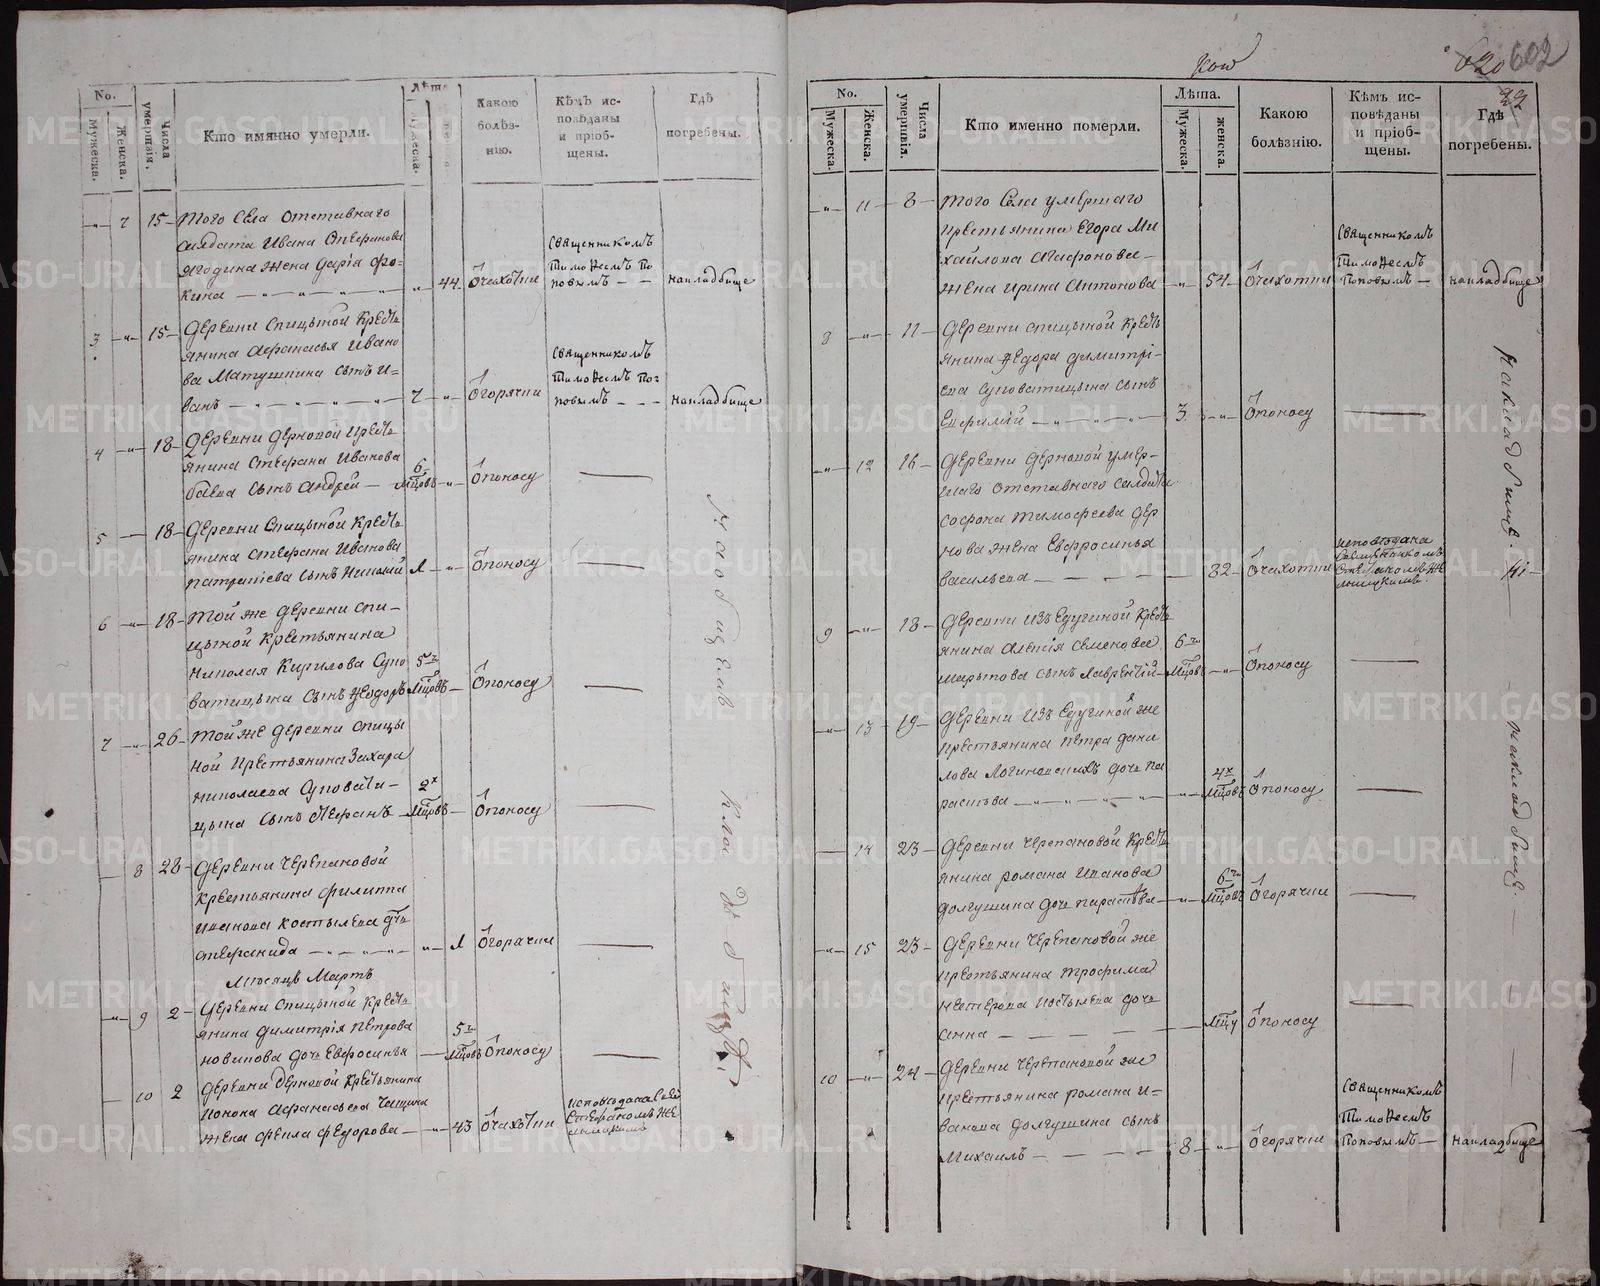 No.
Мужеска.
Женска.
Числа умершія.
Кто имянно умерли.
Лѣта
Мужеска.
Какою болѣз-нію.
Кѣмъ ис-повѣданы и пріоб-щены.
Гдѣ погребены.
7 15 Того Села отставнаго
Солдата Ивана Стефанова
Ягодина жена Дарія Фо-
кина 44 Очахотки Священникомъ Тимофеемъ Поповымъ накладбище
3 15 Деревни Спицыной Кресть
янина Афанасья Ивано
ва Матушкина сынъ И=
ванъ 7 Огорячки Священникомъ Тимофеемъ Поповымъ накладбище
4 18 Деревни Дерновой Кресть
янина Стефана Иванова
сынъ Андрей 6 Мцовъ Опоносу
5 18 Деревни Спицыной Кресть
янина Стефана Иванова
сынъ Николай Опоносу
6 18 Той же деревни Спи-
цыной Крестьянина
Николая Кирилова Суво
ватицына сынъ Ѳеодоръ 5 Мцовъ Опоносу
7 26 Той же деревни Спицы
ной Крестьянина Захара
Николаева
цына сынъ Стефанъ 2х Мцовъ Опоносу
8 28 Деревни Черепановой
Крестьянина Филиппа
Иванова Костылева дочь
Стефанида Огорячки
Мѣсяцъ Мартъ
9 2 Деревни Спицыной Кресть
янина Димитрія Петрова
Новикова дочь Евфросинья 5 Мцовъ Опоносу
10 2 Деревни Дерновой Крестьянина
Афанасьева
жена Фекла Федорова 43 Очахотки Стефаномъ
На общемъ
Кладбищѣ.
602
No.
Мужеска.
Женска.
Числа умершія.
Кто именно померли.
Лѣта.
Мужеска.
женска.
Какою болѣзнію.
Кѣмъ ис-повѣданы и пріоб-щены.
Гдѣ погребены.
11 8 Того Села умершаго
Крестьянина Егора Ми
хайлова
жена Ирина Антонова 54 Очахотки Священникомъ Тимофеемъ Поповымъ накладбище
8 11 Деревни Спицыной Кресть
янина Ѳедора Димитрі-
ева Суповатицына сынъ
Евфимій 3 Опоносу
12 16 Деревни Дерновой умер-
шаго отставнаго Солдата
Софрона Тимофеева Дер
нова жена Евфросинья
Васильева 82 Очахотки
9 18 Деревни Изъедугиной Кресть
янина Алексія Семенова
Шарыпова сынъ Лаврентій 6 Мцовъ Опоносу
13 19 Деревни Изъедугиной же
Крестьянина Петра Дани
лова Логиновскихъ дочь Па
расковья 4х Мцовъ Опоносу
14 23 Деревни Черепановой Кресть
янина Романа Иванова
Долгушина дочь Парасковья 6 Мцовъ Огорячки
15 23 Деревни Черепановой же
Крестьянина Трофима
Нестерова Костылева дочь
Анна Опоносу
10 24 Деревни Черепановой же
Крестьянина Романа И=
ванова Долгушина сынъ
Михаилъ 8 Огорячки Священникомъ Тимофеемъ Поповымъ накладбище
METRIKI.GASO-URAL.RU